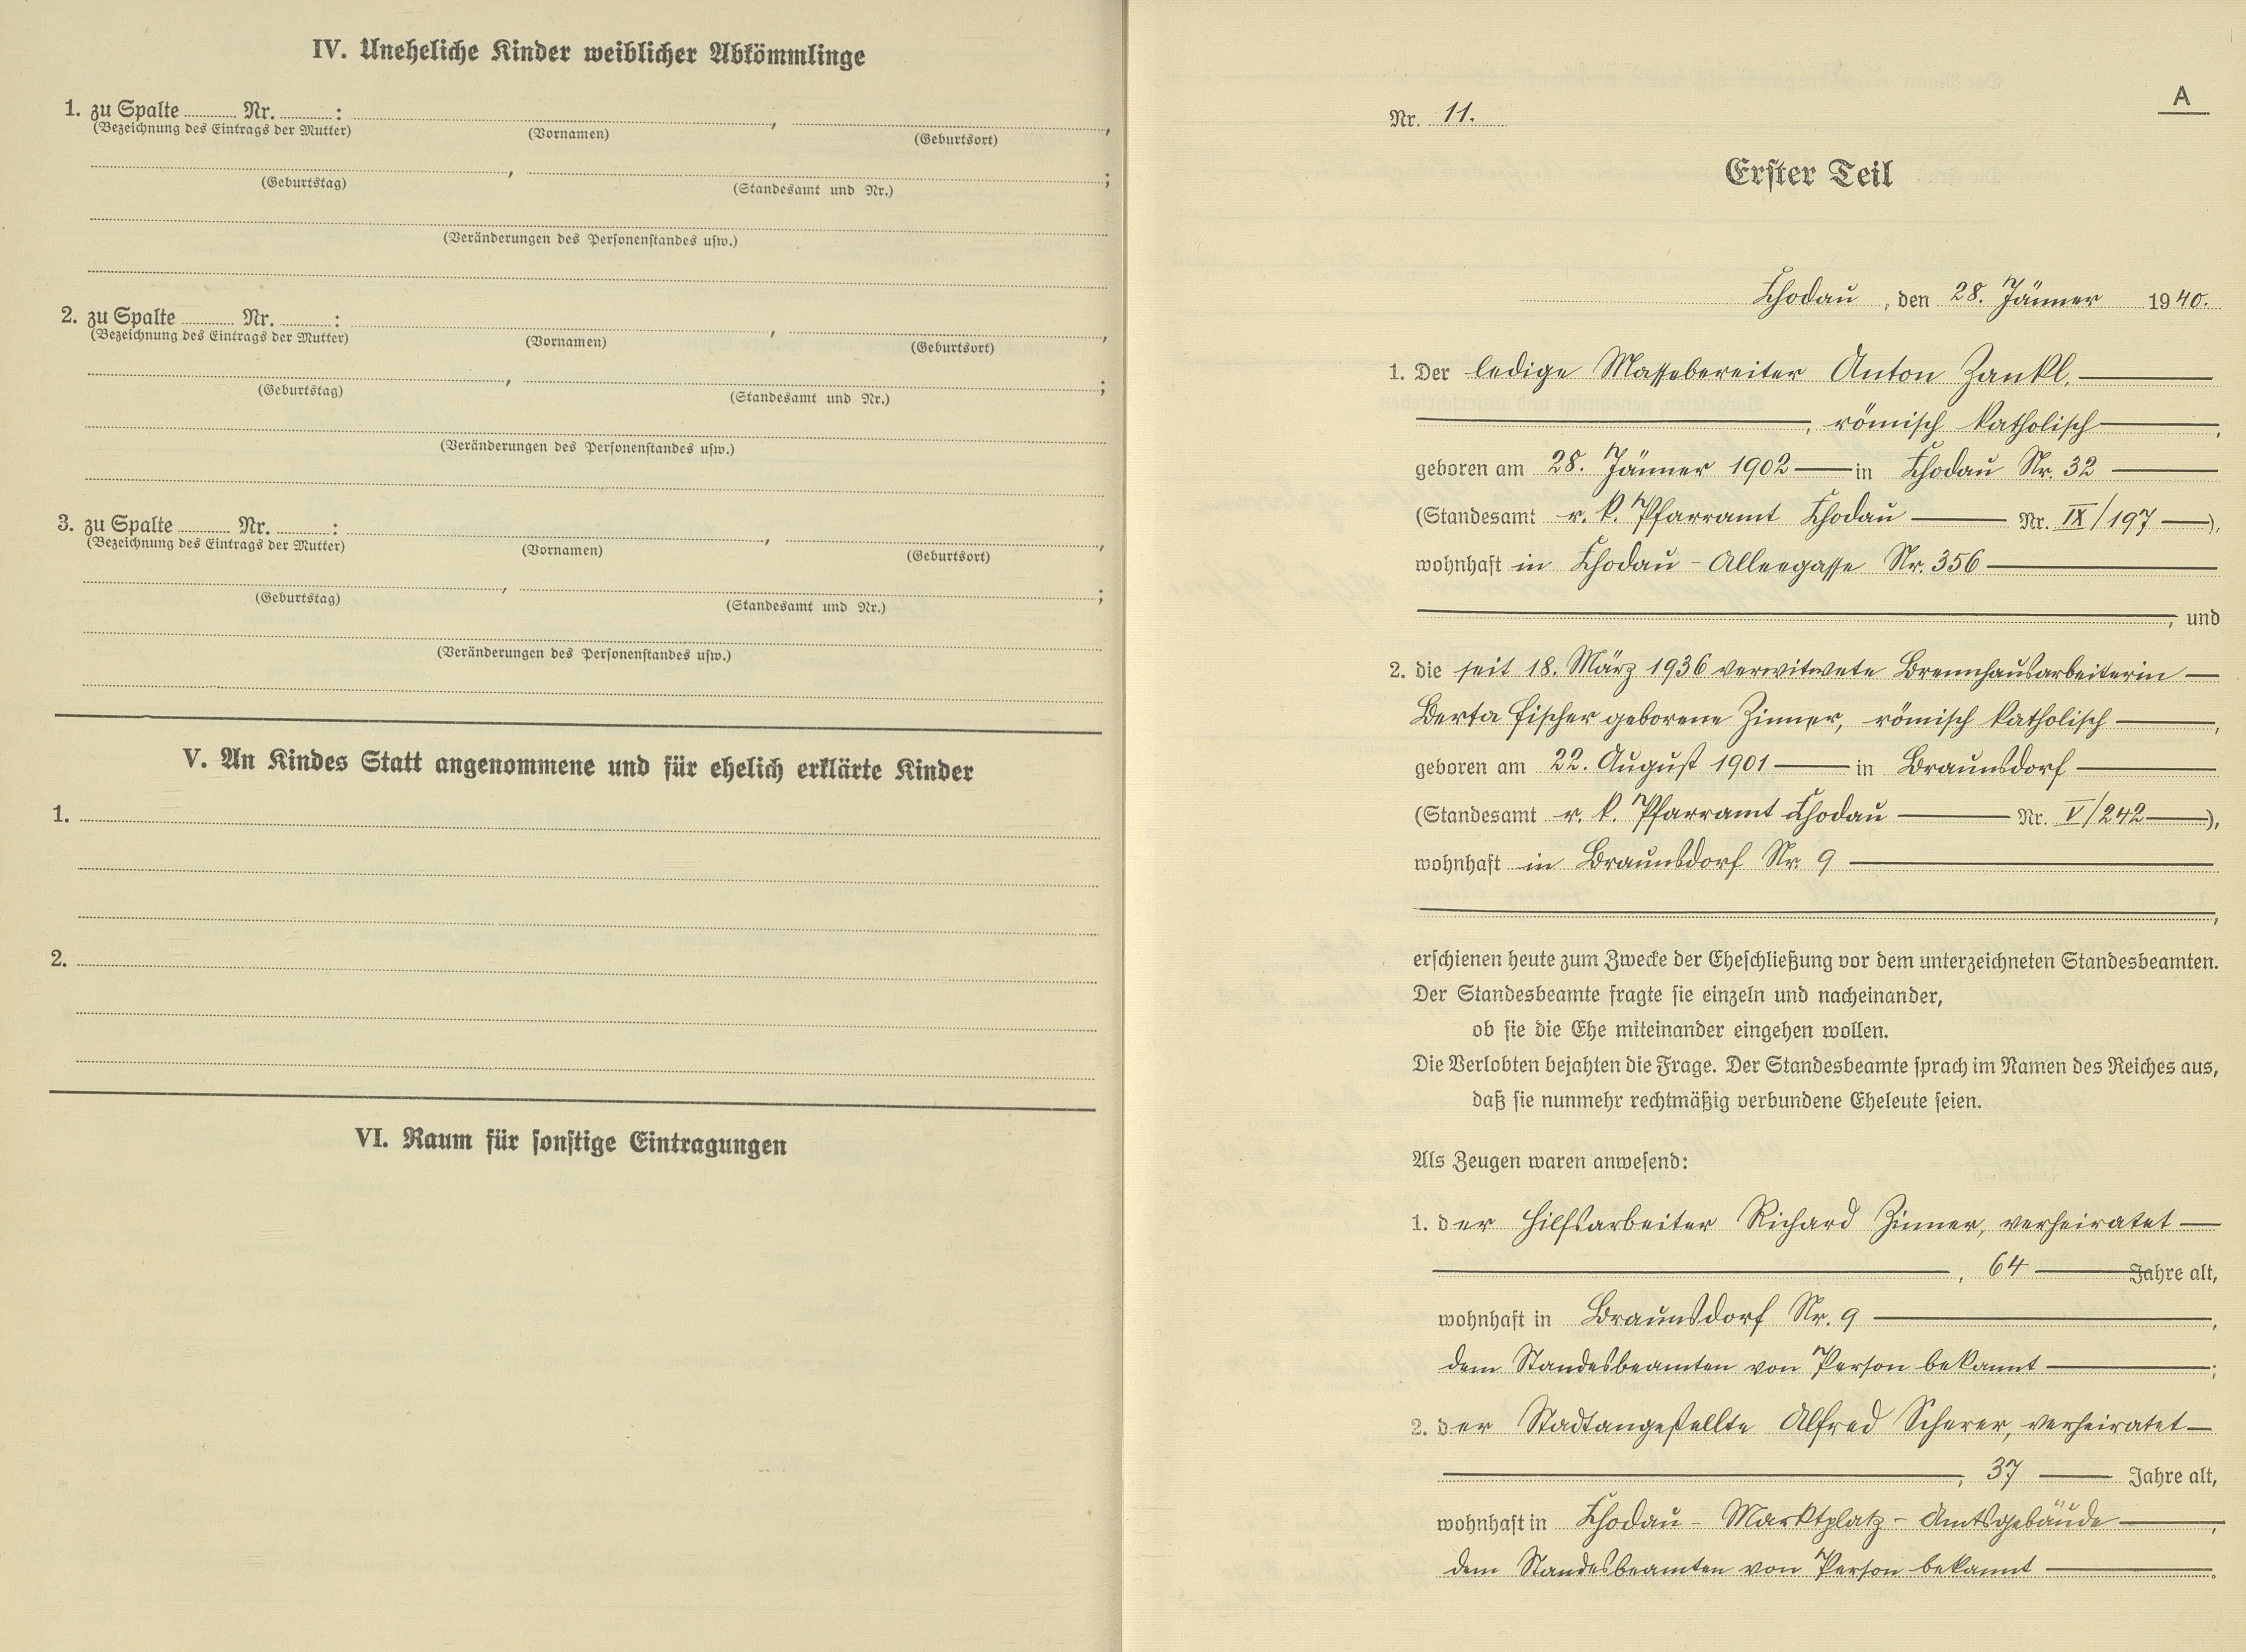 IV. Uneheliche Kinder weiblicher Abkömmlinge
1. zu Spalte ........ Nr. ........ : , ,
(Bezeichnung des Eintrags der Mutter) (Vornamen) (Geburtsort)
, ;
(Geburtstag) (Standesamt und Nr.)
(Veränderungen des Personenstandes usw.)
2. zu Spalte ........ Nr. ........ : , ,
(Bezeichnung des Eintrags der Mutter) (Vornamen) (Geburtsort)
, ;
(Geburtstag) (Standesamt und Nr.)
(Veränderungen des Personenstandes usw.)
3. zu Spalte ........ Nr. ........ : , ,
(Bezeichnung des Eintrags der Mutter) (Vornamen) (Geburtsort)
, ;
(Geburtstag) (Standesamt und Nr.)
(Veränderungen des Personenstandes usw.)
V. An Kindes Statt angenommene und für ehelich erklärte Kinder
1.
2.
VI. Raum für sonstige Eintragungen
A
Nr. 11.
Erster Teil
Chodau, den 28. Jänner 1940.
1. Der ledige Massebereiter Anton Zankl, —
—, römisch katholisch —,
geboren am 28. Jänner 1902 — in Chodau Nr. 32 —
(Standesamt r. k. Pfarramt Chodau — Nr. IX/197 —),
wohnhaft in Chodau - Alleegasse Nr. 356 —
—, und
2. die seit 18. März 1936 verwitwete Brennhausarbeiterin —
Berta Fischer geborene Zinner, römisch katholisch —,
geboren am 22. August 1901 — in Braunsdorf —
(Standesamt r. k. Pfarramt Chodau — Nr. V/242 —),
wohnhaft in Braunsdorf Nr. 9 —
—,
erschienen heute zum Zwecke der Eheschließung vor dem unterzeichneten Standesbeamten.
Der Standesbeamte fragte sie einzeln und nacheinander,
ob sie die Ehe miteinander eingehen wollen.
Die Verlobten bejahten die Frage. Der Standesbeamte sprach im Namen des Reiches aus,
daß sie nunmehr rechtmäßig verbundene Eheleute seien.
Als Zeugen waren anwesend:
1. der Hilfsarbeiter Richard Zinner, verheiratet —
—, 64 — Jahre alt,
wohnhaft in Braunsdorf Nr. 9 —,
dem Standesbeamten von Person bekannt —;
2. der Stadtangestellte Alfred Scherer, verheiratet —
—, 37 — Jahre alt,
wohnhaft in Chodau - Marktplatz - Amtsgebäude —,
dem Standesbeamten von Person bekannt —.